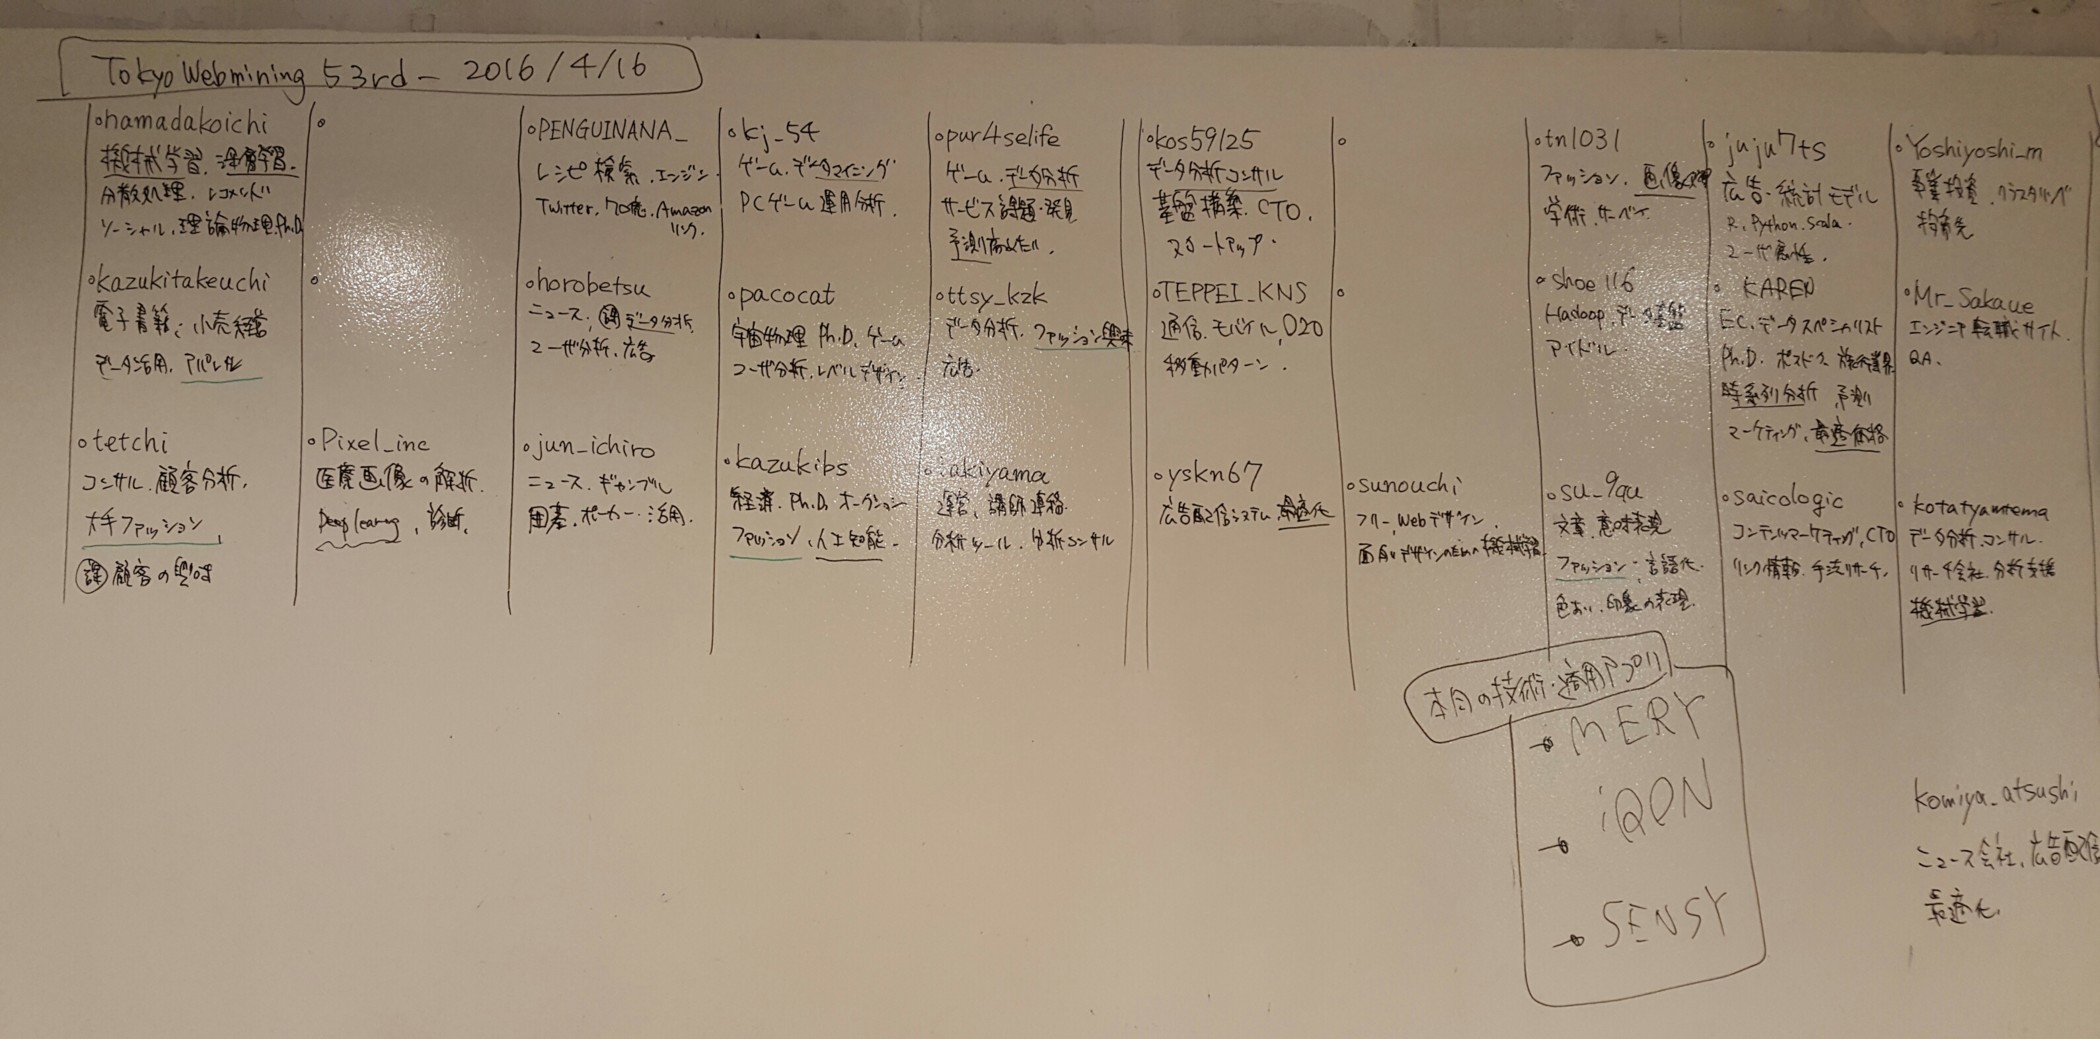 TokyoWebmining 53rd - 2016/4/16
hamadakoichi
機械学習.深層学習.
分散処理.レコメンド
ソーシャル.理論物理.Ph.D
kazukitakeuchi
電子書籍、小売経営
データ活用.アパレル
tetchi
コンサル.顧客分析.
大手ファッション
課 顧客の興味
Pixel_inc
医療画像の解析.
Deep learning、診断.
PENGUINANA_
レシピ検索.エンジン.
Twitter. Amazon
リンク.
horobetsu
ニュース、調 データ分析.
ユーザ分析、広告
jun_ichiro
ニュース.ギャンブル
囲碁.ポーカー.活用.
kj_54
ゲーム.データマイニング
PCゲーム運用分析.
pacocat
宇宙物理Ph.D.ゲーム
ユーザ分析.レベルデザイン.
kazukibs
経済.Ph.D.オークション
ファッション、人工知能.
pur4selife
ゲーム.データ分析
サービス課題・発見
予測高めたい.
ttsy_kzk
データ分析.ファッション興味
広告.
akiyama
運営、講師連絡.
分析ツール.分析コンサル
kos59125
データ分析コンサル
基盤構築.CTO.
スタートアップ.
TEPPEI_KNS
通信.モバイル.O2O
移動パターン.
yskn67
広告配信システム.最適化
sunouchi
フリー.Webデザイン.
機械学習
tn1031
ファッション.画像処理
学術.サーベイ.
shoe116
Hadoop.データ基盤
アイドル.
su_9qu
文章.意味表現
ファッション:言語化.
印象の表現.
juju7ts
広告.統計モデル
R.Python.Scala.
ユーザ属性.
KAREN
EC.データスペシャリスト
Ph.D.ポスドク.旅行業界.
時系列分析 予測
マーケティング、最適価格
saicologic
コンテンツマーケティング.CTO
リンク情報.手法リサーチ.
Yoshiyoshi_m
事業投資.クラスタリング
投資先
Mr_Sakaue
エンジニア転職サイト.
QA.
kotatyamtema
データ分析.コンサル.
リサーチ会社.分析支援
機械学習.
本日の技術・適用アプリ
MERY
iQON
SENSY
komiya_atsushi
ニュース会社、広告配信
最適化.